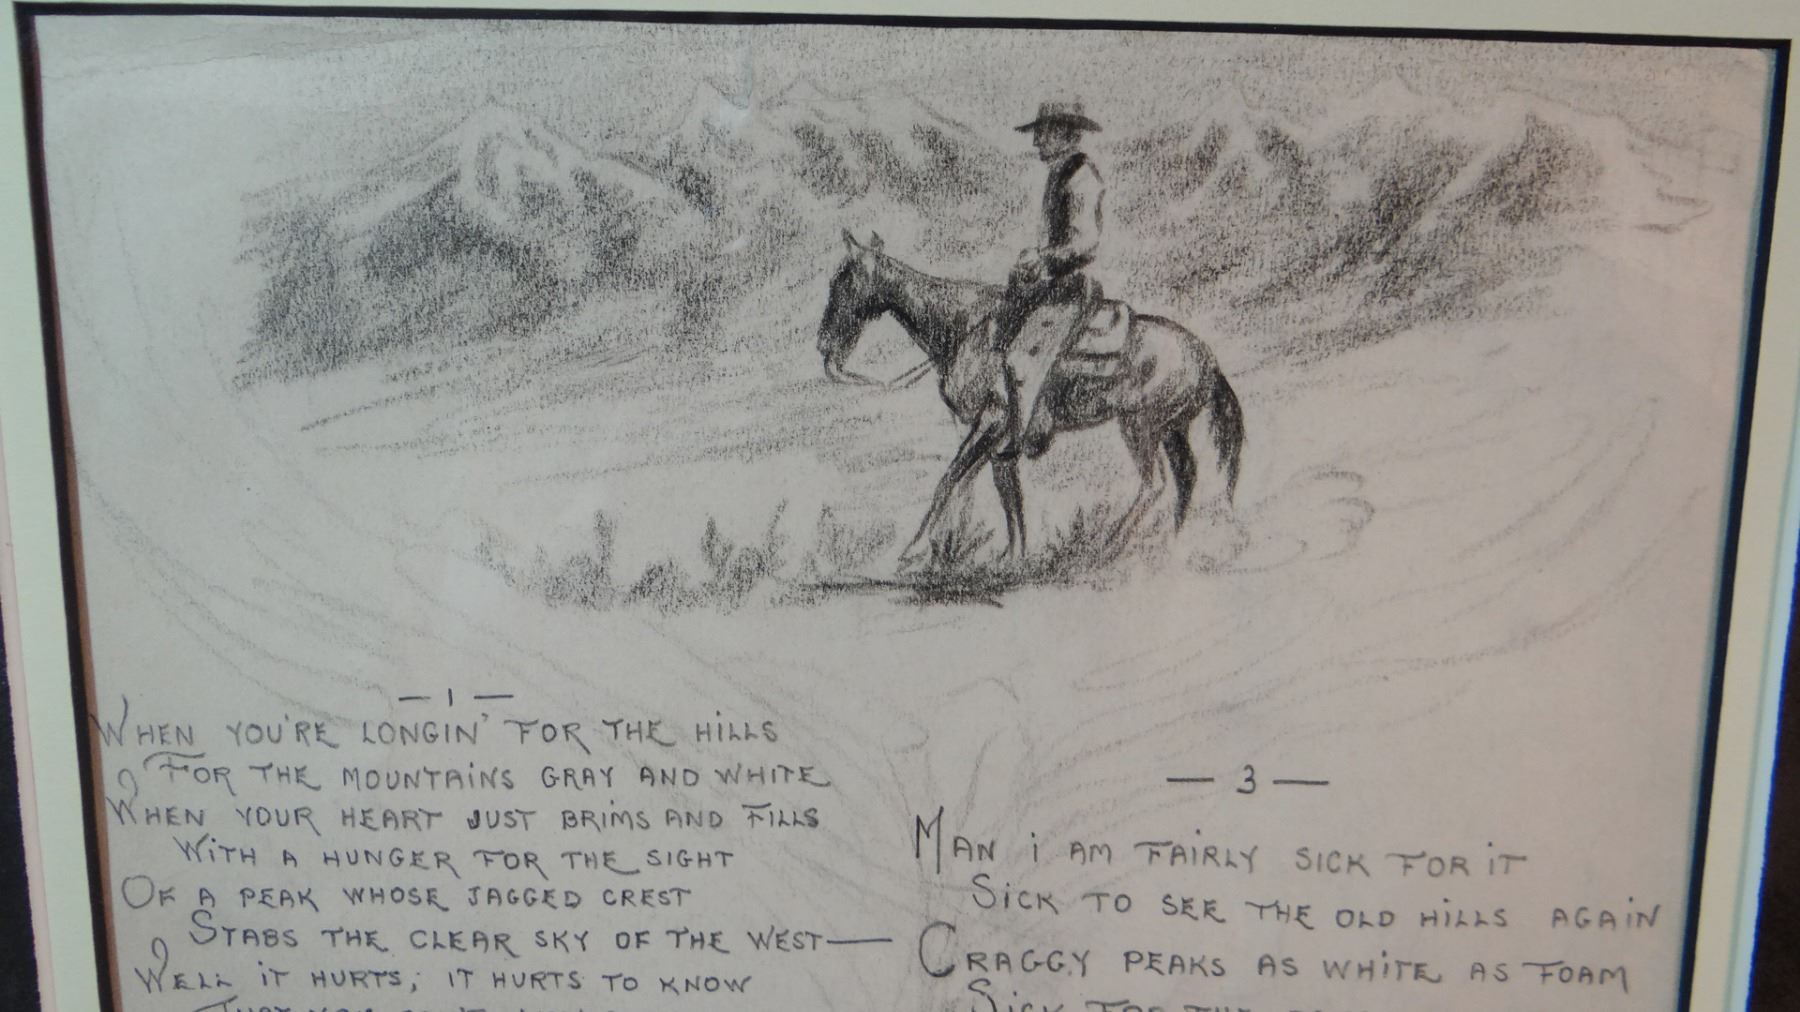 — 1 —
WHEN YOU'RE LONGIN' FOR THE HILLS
FOR THE MOUNTAINS GRAY AND WHITE
WHEN YOUR HEART JUST BRIMS AND FILLS
WITH A HUNGER FOR THE SIGHT
OF A PEAK WHOSE JAGGED CREST
STABS THE CLEAR SKY OF THE WEST—
WELL IT HURTS; IT HURTS TO KNOW
— 3 —
MAN I AM FAIRLY SICK FOR IT
SICK TO SEE THE OLD HILLS AGAIN
CRAGGY PEAKS AS WHITE AS FOAM
SICK FOR THE